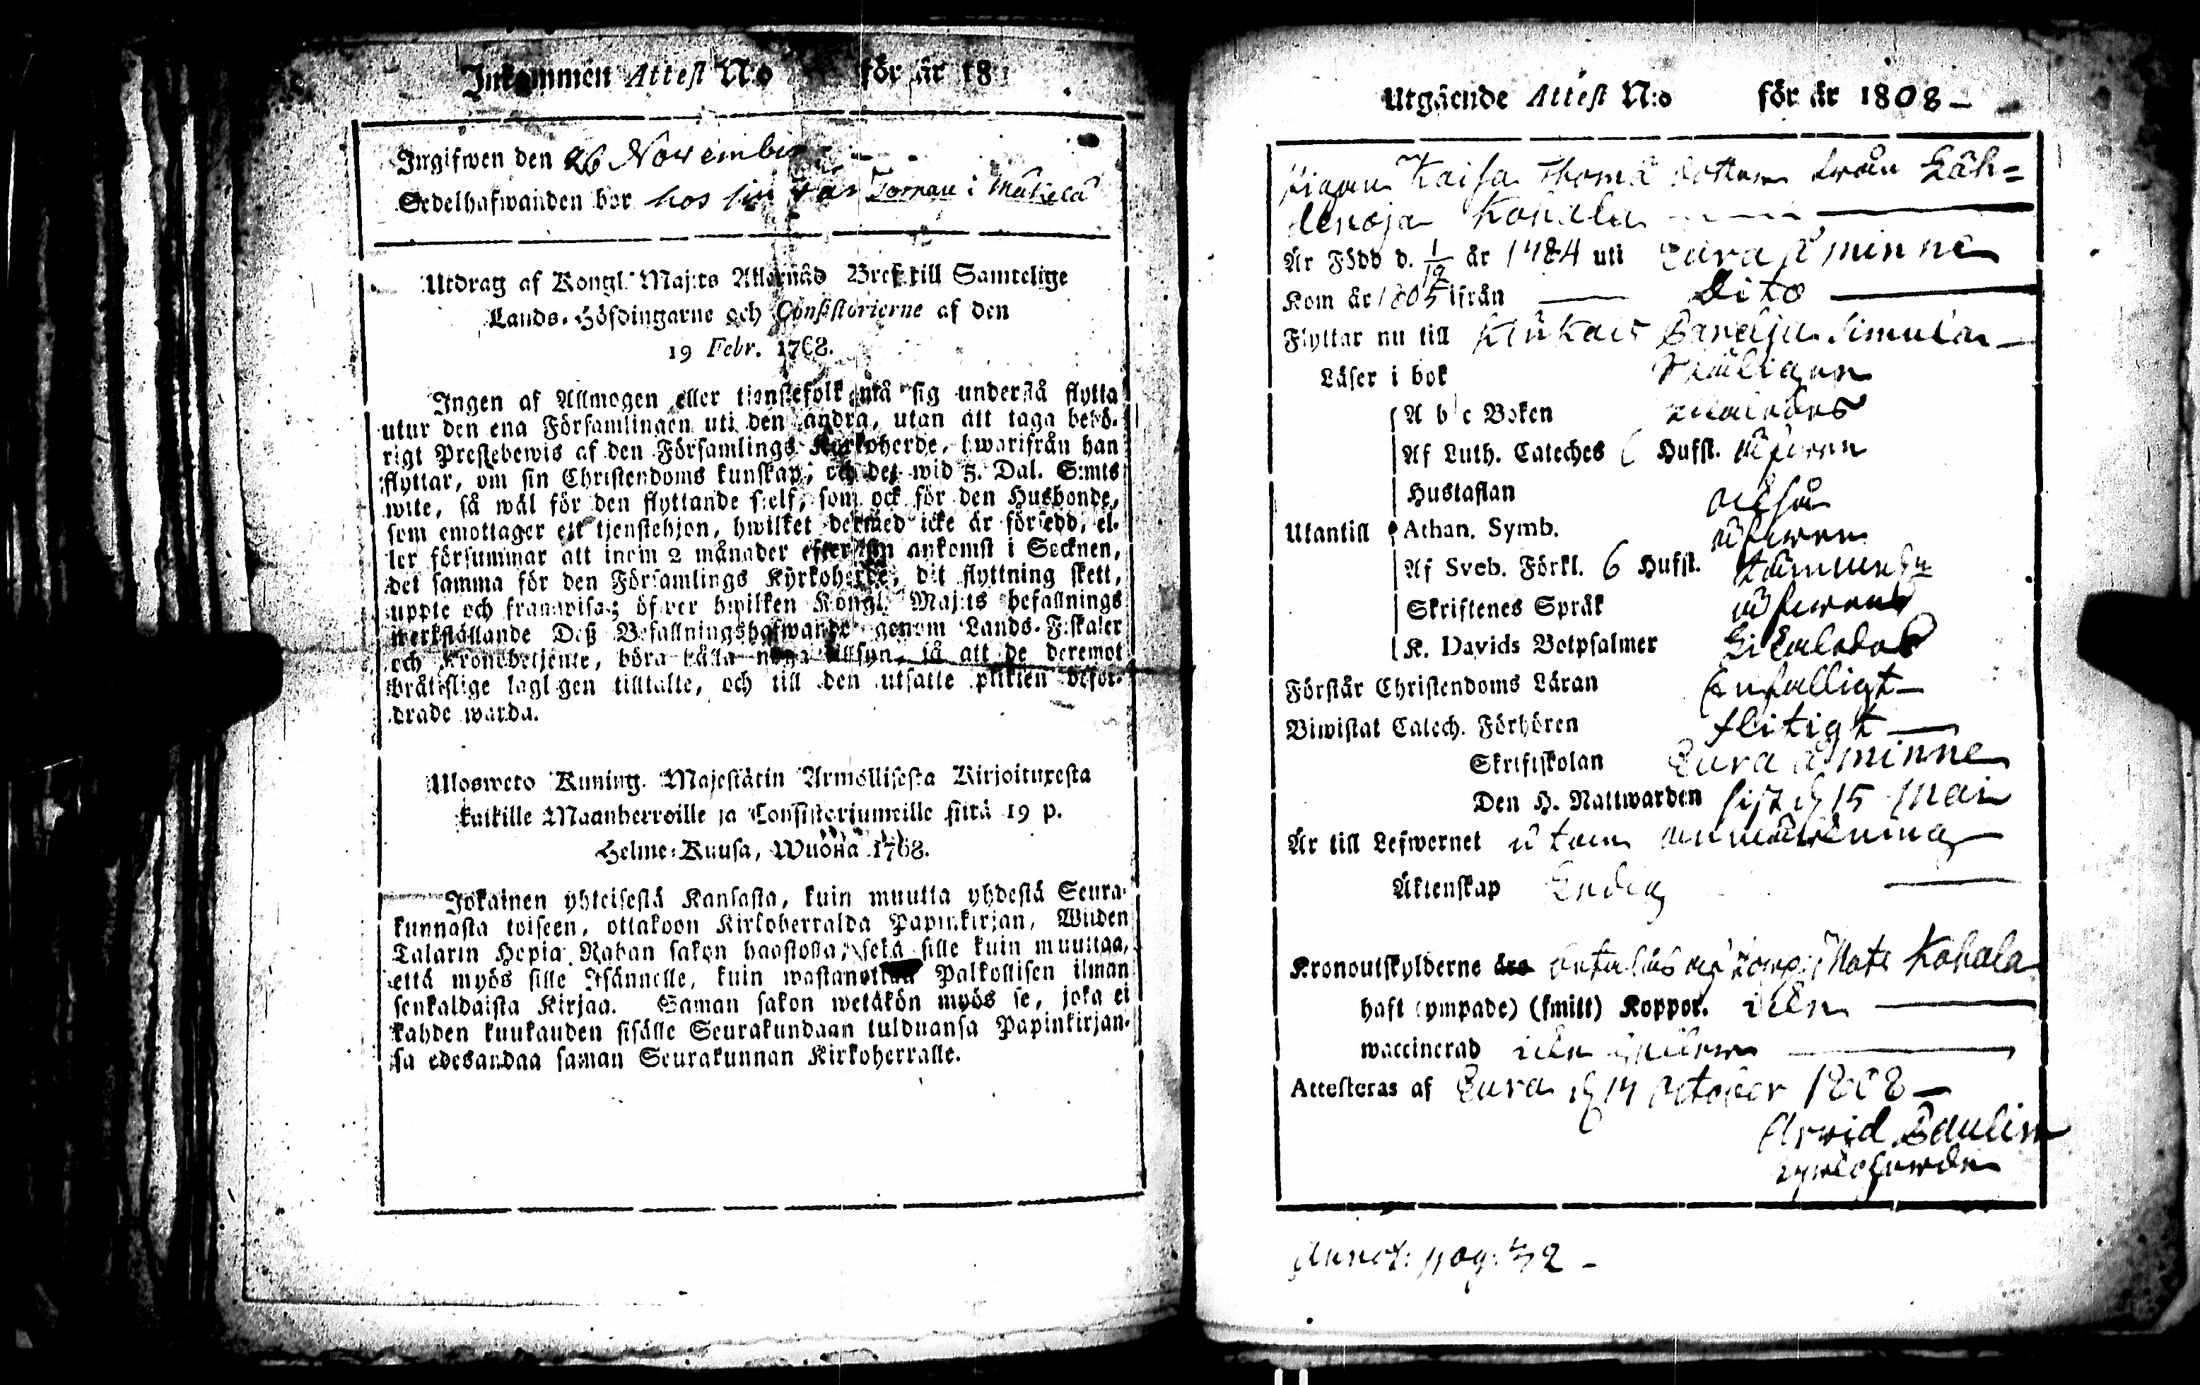 Inkommen Attest N:o för år 18
Ingifwen den 26 November
Sedelhafwanden bor hos sin Far Tornau i Mäkelä
Utdrag af Kongl. Maj:ts Allernåd. Bref till Samtelige
Lands-Höfdingarne och Consistorierne af den
19 Febr. 1768.
Ingen af Allmogen eller tjenstefolk må sig understå flytta
utur den ena Församlingen uti den andra, utan att taga behö-
rigt Prestebewis af den Församlings Kyrkoherde, hwarifrån han
flyttar, om sin Christendoms kunskap; och det wid 5. Dal. S:mts
wite, så wäl för den flyttande sielf, som ock för den Husbonde,
som emottager ett tjenstehjon, hwilket dermed icke är försedd, el-
ler försummar att inom 2 månader efter sin ankomst i Socknen,
det samma för den Församlings Kyrkoherde, dit flyttning skett,
uppte och framwisa; öfwer hwilken Kongl. Maj:ts befallnings
werkställande Deß Befallningshafwande genom Lands-Fiskaler
och Kronobetjente, böra hålla noga tillsyn, så att de deremot
bråtslige lagligen tilltalte, och till den utsatte plikten befor-
drade warda.
Ulosweto Kuning. Majestätin Armollisesta Kirjoituxesta
kaikille Maanherroille ja Consistoriumeille siitä 19 p.
Helme-Kuusa, Wuonna 1768.
Jokainen yhteisestä Kansasta, kuin muutta yhdestä Seura-
kunnasta toiseen, ottakoon Kirkoherralda Papinkirjan, Wiiden
Talarin Hopia Rahan sakon haastolla, sekä sille kuin muuttaa,
että myös sille Isännelle, kuin wastanottaa Palkollisen ilman
senkaldaista Kirjaa. Saman sakon wetäkön myös se, joka ei
kahden kuukauden sisälle Seurakundaan tulduansa Papinkirjan-
sa edesandaa saman Seurakunnan Kirkoherralle.
Utgående Attest N:o för år 1808 –
Pigan Kaisa Thomä dotter från Läh-
denoja Kohala
Är Född d. 1/12 år 1784 uti Eura åminne
Kom år 1805 ifrån Dito
Flyttar nu till Kiukais Panelja Simula
Läser i bok
A b c Boken
Af Luth. Cateches 6 Hufst. äfwen
Hustaflan också
Utantill Athan. Symb. äfwen
Af Sveb. Förkl. 6 Hufst.
Skriftenes Språk äfwen
K. Davids Botpsalmer Likaledes
Förstår Christendoms Läran Enfalligt
Biwistat Catech. Förhören flitigt
Skriftskolan Eura åminne
Den H. Nattwarden sist d 15 Maii
Är till Lefwernet utan anmärkning
Äktenskap Ledig
Kronoutskylderne betalas af Komp: Kohala
haft (ympade) (smitt) Koppor. icke
waccinerad icke heller
Attesteras af Eura d 14 October 1808 –
Arvid Paulin
Kyrkoherde
Annot: pag: 32 –